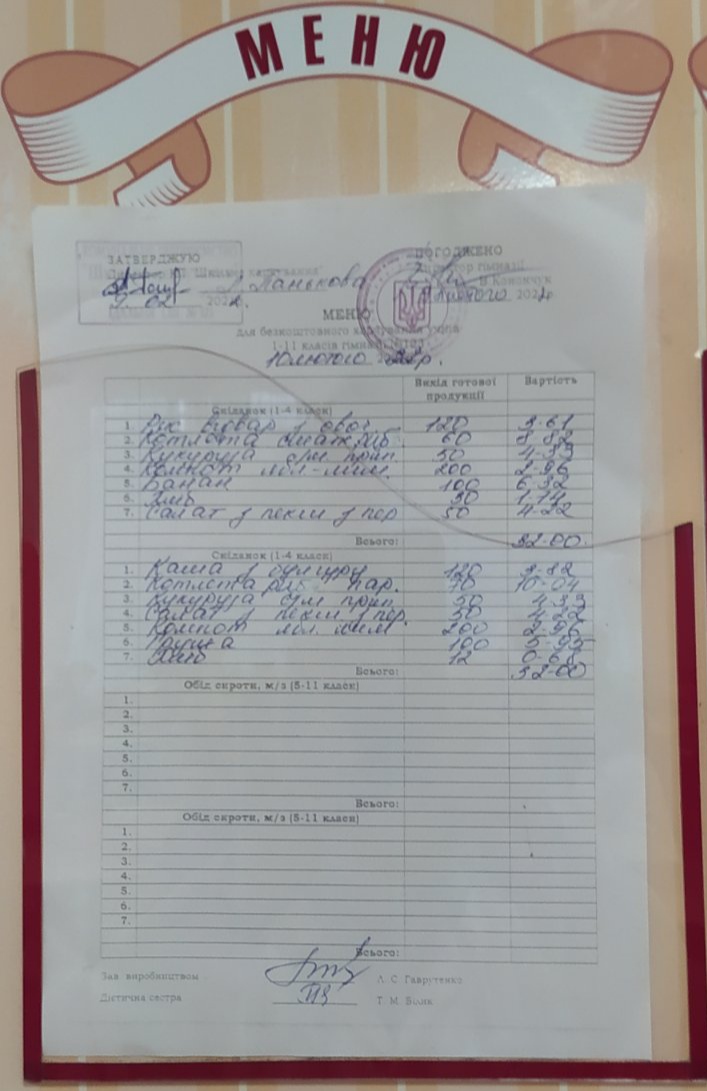 МЕНЮ
ЗАТВЕРДЖУЮ
ПОГОДЖЕНО
Директор "Шкільне харчування"
Директор гімназії
Л. Панькова
9.02 2022.
лютого 2022р
МЕНЮ
для безкоштовного харчування учнів
1-11 класів гімназії
10 лютого 2022р.
Вихід готової продукції
Вартість
Сніданок (1-4 клас)
1. Рис відвар з овоч. 120 3-61
2. Котлета 60 8-82
3. Кукуруза 50 4-33
4. Компот 200 2-96
5. Банан 100 6-32
6. Хліб 30 1-74
7. Салат з пекін з пер 50 4-22
Всього: 32-00
Сніданок (1-4 клас)
1. Каша з булгуру 120 3-82
2. Котлета риб пар. 70 10-04
3. Кукуруза 50 4-33
4. Салат з пекін з пер. 50 4-22
5. Компот 200 2-96
6. Груша 100 5-95
7. Хліб 12 0-68
Всього: 32-00
Обід сироти, м/з (5-11 клас)
1.
2.
3.
4.
5.
6.
7.
Всього:
Обід сироти, м/з (5-11 клас)
1.
2.
3.
4.
5.
6.
7.
Всього:
Зав. виробництвом Л. С. Гаврутенко
Дієтична сестра Т. М. Білик